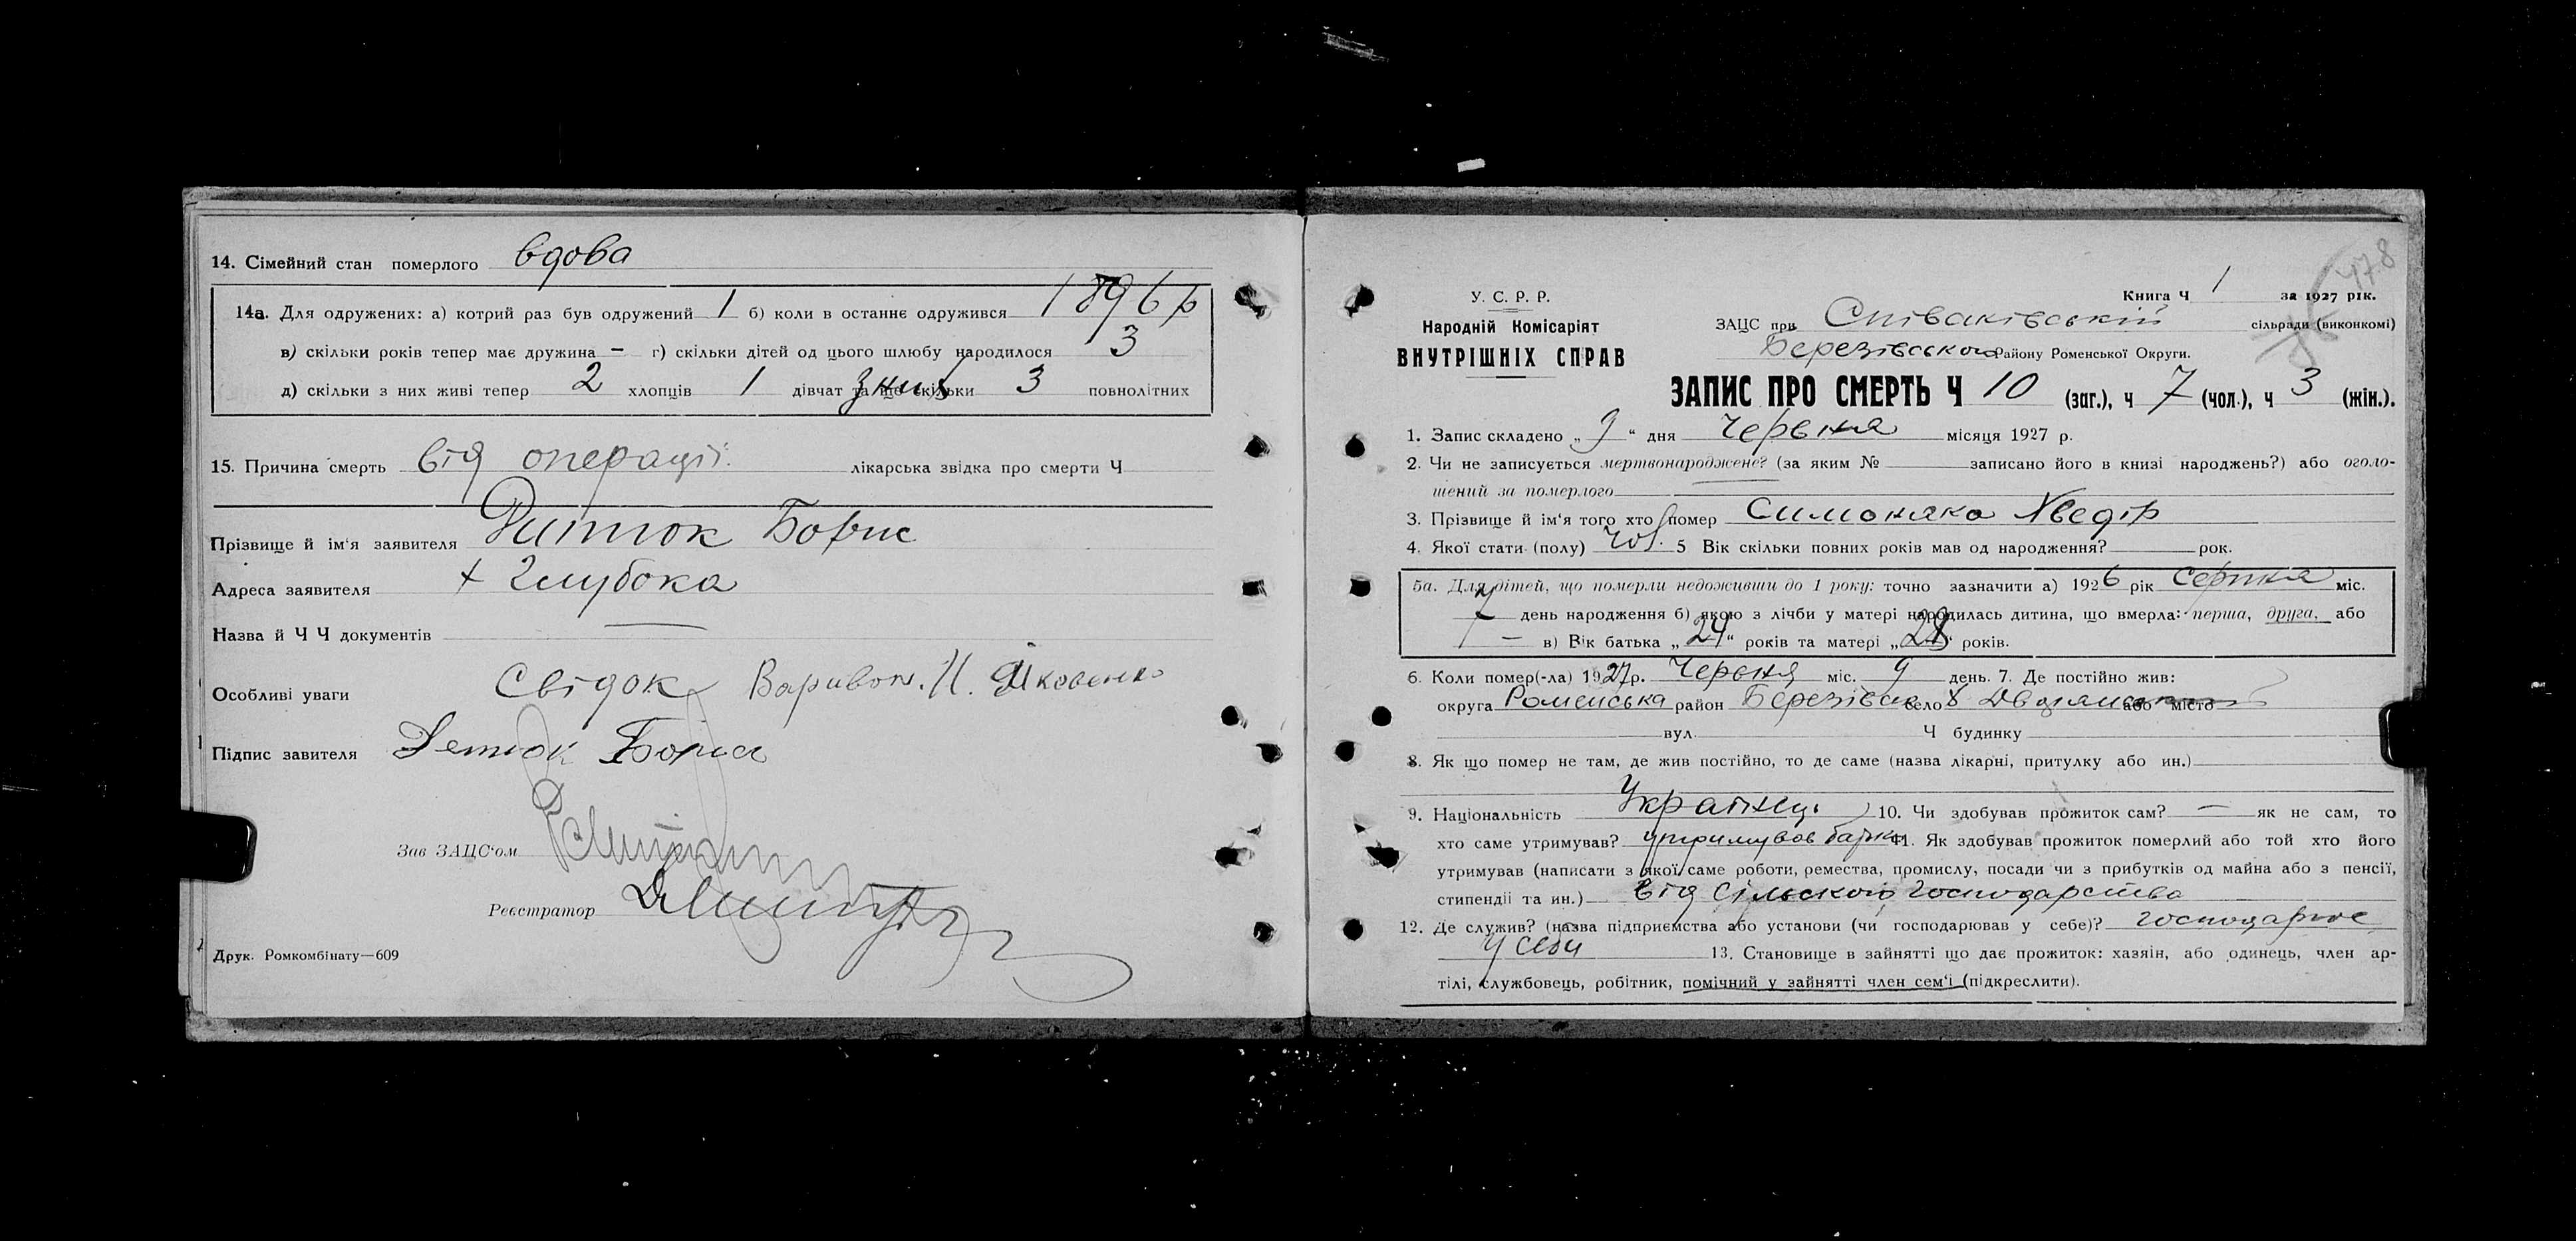 14. Сімейний стан померлого вдова
14а. Для одружених: а) котрий раз був одружений 1 б) коли в останнє одружився 1896 р
в) скільки років тепер має дружина — г) скільки дітей од цього шлюбу народилося 3
д) скільки з них живі тепер 2 хлопців 1 дівчат та що скільки з них 3 повнолітних
15. Причина смерть від операції. лікарська звідка про смерти Ч
Прізвище й ім'я заявителя Дитюк Борис
Адреса заявителя х Глубока
Назва й Ч Ч документів —
Особливі уваги Свідок Варивон. Н. Яковенко
Підпис завителя Детюк Борис
Зав ЗАЦС'ом
Реєстратор
Друк. Ромкомбінату—609
478
У. С. Р. Р.
Народній Комісаріят
ВНУТРІШНІХ СПРАВ
Книга Ч 1 за 1927 рік.
ЗАЦС при Співаківській сільради (виконкомі)
Березівського Району Роменської Округи.
ЗАПИС ПРО СМЕРТЬ Ч 10 (заг.), ч 7 (чол.), ч 3 (жін.).
1. Запис складено „ 9 “ дня Червня місяця 1927 р.
2. Чи не записується мертвонароджене? (за яким № записано його в книзі народжень?) або оголо-
шений за померлого
3. Прізвище й ім'я того хто помер Симоняко Хведір
4. Якої стати (полу) Чол. 5 Вік скільки повних років мав од народження? рок.
5а. Для дітей, що померли недоживши до 1 року: точно зазначити а) 1926 рік Серпня міс.
7 день народження б) якою з лічби у матері народилась дитина, що вмерла: перша, друга, або
— в) Вік батька „ 24 “ років та матері „ 28 “ років.
6. Коли помер(-ла) 1927 р. Червня міс. 9 день. 7. Де постійно жив:
округа Роменська район Березівск село х Двоєянська або місто
вул. Ч будинку
8. Як що помер не там, де жив постійно, то де саме (назва лікарні, притулку або ин.)
9. Національність Українец. 10. Чи здобував прожиток сам? — як не сам, то
хто саме утримував? утримував батько 11. Як здобував прожиток померлий або той хто його
утримував (написати з якої саме роботи, ремества, промислу, посади чи з прибутків од майна або з пенсії,
стипендії та ин.) від сільского господарства
12. Де служив? (назва підприємства або установи (чи господарював у себе)? господарює
у себи 13. Становище в зайнятті що дає прожиток: хазяін, або одинець, член ар-
тілі, службовець, робітник, помічний у зайнятті член сем'ї (підкреслити).